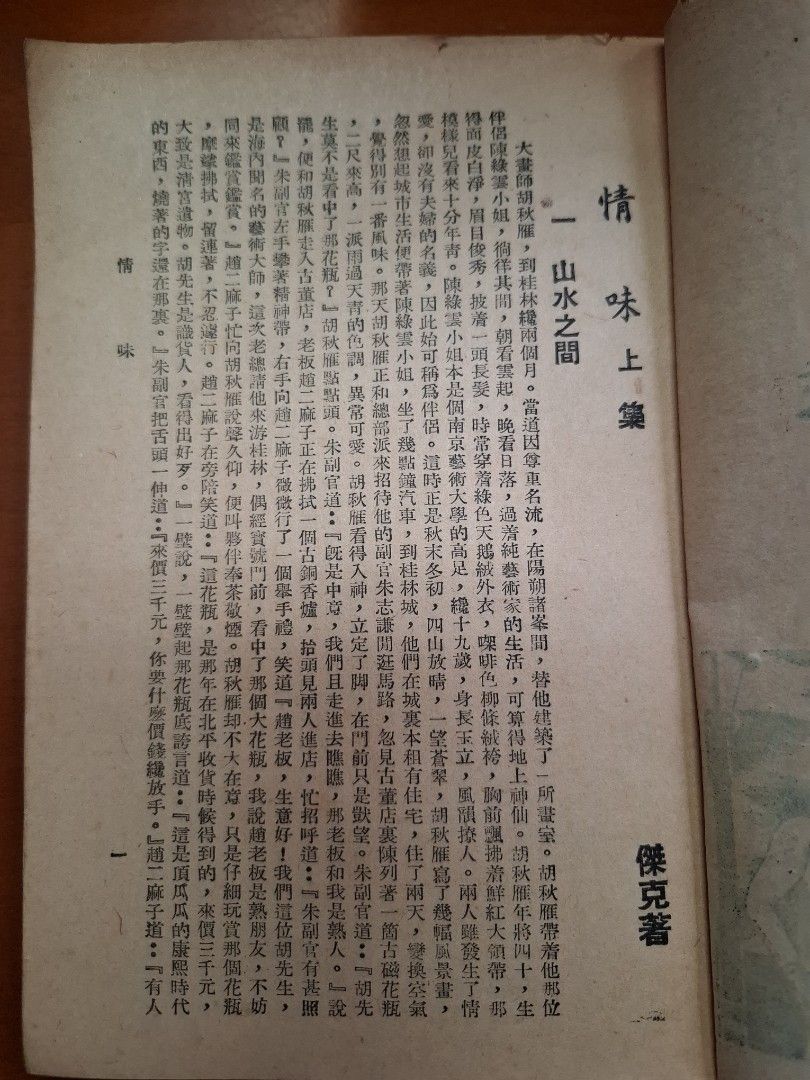 情味上集
傑克著
一 山水之間
大畫師胡秋雁，到桂林纔兩個月。當道因尊重名流，在陽朔諸峯間，替他建築了一所畫室。胡秋雁帶着他那位
伴侶陳綠雲小姐，徜徉其間，朝看雲起，晚看日落，過着純藝術家的生活，可算得地上神仙。胡秋雁年將四十，生
得面皮白淨，眉目俊秀，披着一頭長髮，時常穿着綠色天鵝絨外衣，㗎啡色柳條絨袴，胸前飄拂着鮮紅大領帶，那
模樣兒看來十分年青。陳綠雲小姐本是個南京藝術大學的高足，纔十九歲，身長玉立，風韻撩人。兩人雖發生了情
愛，卻沒有夫婦的名義，因此始可稱爲伴侶。這時正是秋末冬初，四山放晴，一望蒼翠，胡秋雁寫了幾幅風景畫，
忽然想起城市生活便帶著陳綠雲小姐，坐了幾點鐘汽車，到桂林城，他們在城裏本租有住宅，住了兩天，變換空氣
，覺得別有一番風味。那天胡秋雁正和總部派來招待他的副官朱志謙閒逛馬路，忽見古董店裏陳列著一箇古磁花瓶
，二尺來高，一派雨過天青的色調，異常可愛。胡秋雁看得入神，立定了脚，在門前只是獃望。朱副官道：『胡先
生莫不是看中了那花瓶？』胡秋雁點點頭。朱副官道：『旣是中意，我們且走進去瞧瞧，那老板和我是熟人。』說
罷，便和胡秋雁走入古董店，老板趙二麻子正在拂拭一個古銅香爐，抬頭見兩人進店，忙招呼道：『朱副官有甚照
顧？』朱副官左手攀著精神帶，右手向趙二麻子微微行了一個舉手禮，笑道『趙老板，生意好！我們這位胡先生，
是海內聞名的藝術大師，這次老總請他來游桂林，偶經寶號門前，看中了那個大花瓶，我說趙老板是熟朋友，不妨
同來鑑賞鑑賞。』趙二麻子忙向胡秋雁說聲久仰，便叫夥伴奉茶敬煙。胡秋雁却不大在意，只是仔細玩賞那個花瓶
，摩挲拂拭，留連著，不忍遽行。趙二麻子在旁陪笑道：『這花瓶，是那年在北平收貨時候得到的，來價三千元，
大致是清宮遺物。胡先生是識貨人，看得出好歹。』一壁說，一壁豎起那花瓶底誇言道：『這是頂瓜瓜的康熙時代
的東西，燒著的字還在那裏。』朱副官把舌頭一伸道：『來價三千元，你要什麽價錢纔放手。』趙二麻子道：『有人
情 味
一